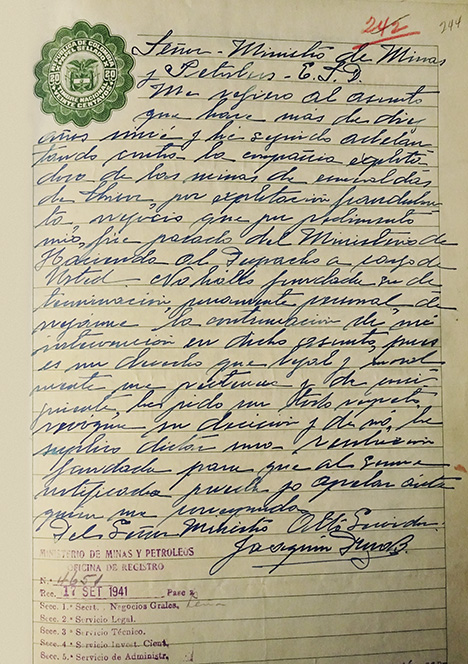 242
244
REPUBLICA DE COLOMBIA
20 20
VEINTE CENTAVOS
Señor - Ministro de Minas
y Petroleos - E.S.D.
Me refiero al asunto
que hace mas de diez
años inicié y he seguido adelan
tando contra la compañia explota
dora de las minas de esmeraldas
de por explotacion fraudulen
ta, negocio que por pedimento
mio, fué pasado del Ministerio de
Hacienda al Despacho a cargo de
Usted. No hallo fundada su de
terminacion, puramente personal de
negarme la continuacion de mi
intervencion en dicho asunto, pues
es un derecho que legal y moral
mente me pertenece y de consi
guiente, le pido con todo respeto,
revoque su decision y de nó, le
suplico dictar una Resolucion
fundada para que al serme
notificada pueda yo apelar ante
quien me corresponda.
Del Señor Ministro Atto Servidor
Joaquin
MINISTERIO DE MINAS Y PETROLEOS
OFICINA DE REGISTRO
N.° 4651
Rec. 17 SET 1941 Pase a
Secc. 1.ª Secrt. Negocios Grales.
Secc. 2.ª Servicio Legal.
Secc. 3.ª Servicio Técnico.
Secc. 4.ª Servicio Invest. Cient.
Secc. 5.ª Servicio de Administr.